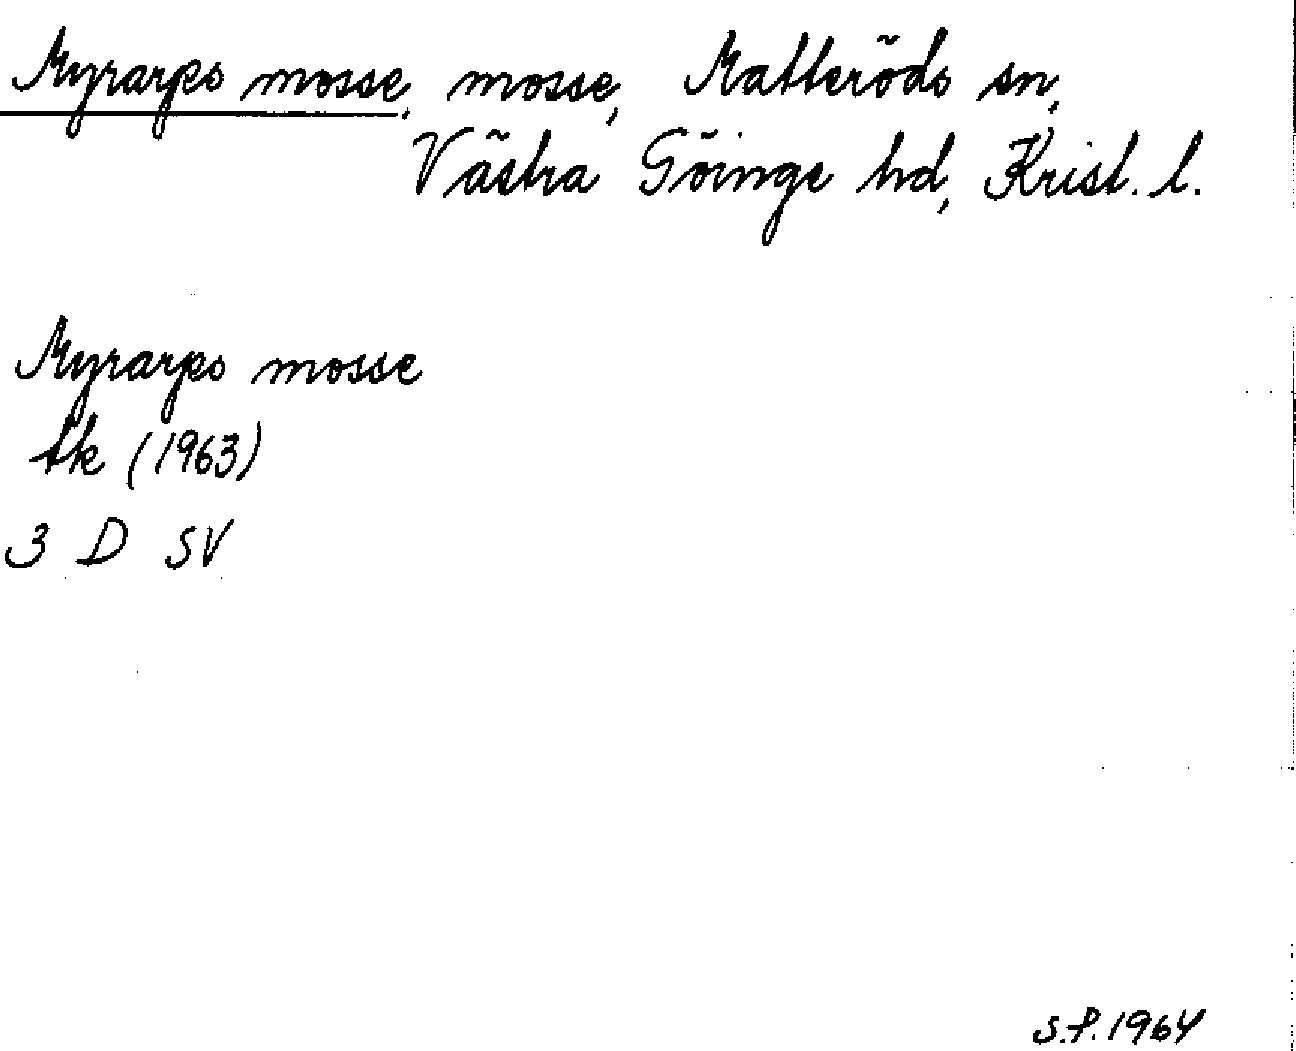 Myrarps mosse, mosse, Matteröds sn,
Västra Göinge hd, Krist. l.
Myrarps mosse
tk (1963)
3 D SV
S.F. 1964